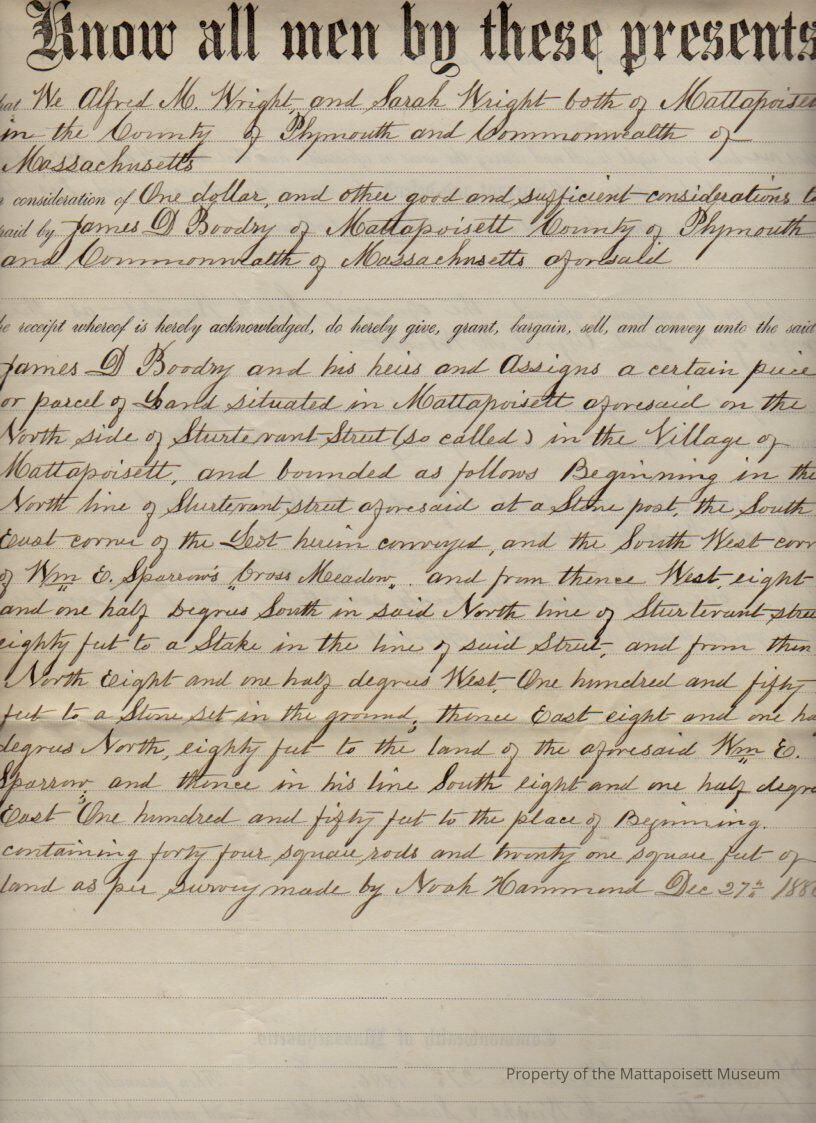 Know all men by these presents
hat We Alfred M. Wright, and Sarah Wright both of Mattapoiset
in the County of Plymouth and Commonwealth of
Massachusetts
n consideration of One dollar, and other good and sufficient considerations to
paid by James D Boodry of Mattapoisett County of Plymouth
and Commonwealth of Massachusetts aforesaid
he receipt whereof is hereby acknowledged, do hereby give, grant, bargain, sell, and convey unto the said
James D Boodry and his heirs and Assigns a certain piece
or parcel of Land situated in Mattapoisett aforesaid on the
North side of Sturtevant Street (so called) in the Village of
Mattapoisett, and bounded as follows Beginning in the
North line of Sturtevant street aforesaid at a Stone post, the South
East corner of the Lot herein conveyed, and the South West corn
of Wm E. Sparrow's "Cross Meadow". and from thence West, eight
and one half Degrees South in said North line of Sturtevant stree
eighty feet to a Stake in the line of said Street, and from then
North Eight and one half degrees West, One hundred and fifty
feet to a Stone set in the ground; thence East eight and one ha
degrees North, eighty feet to the land of the aforesaid Wm E.
Sparrow; and thence in his line South eight and one half degre
East One hundred and fifty feet to the place of Beginning.
containing forty four square rods and twenty one square feet of
land as per survey made by Noah Hammond Dec 27th 188
Commonwealth of Massachusetts.
Property of the Mattapoisett Museum